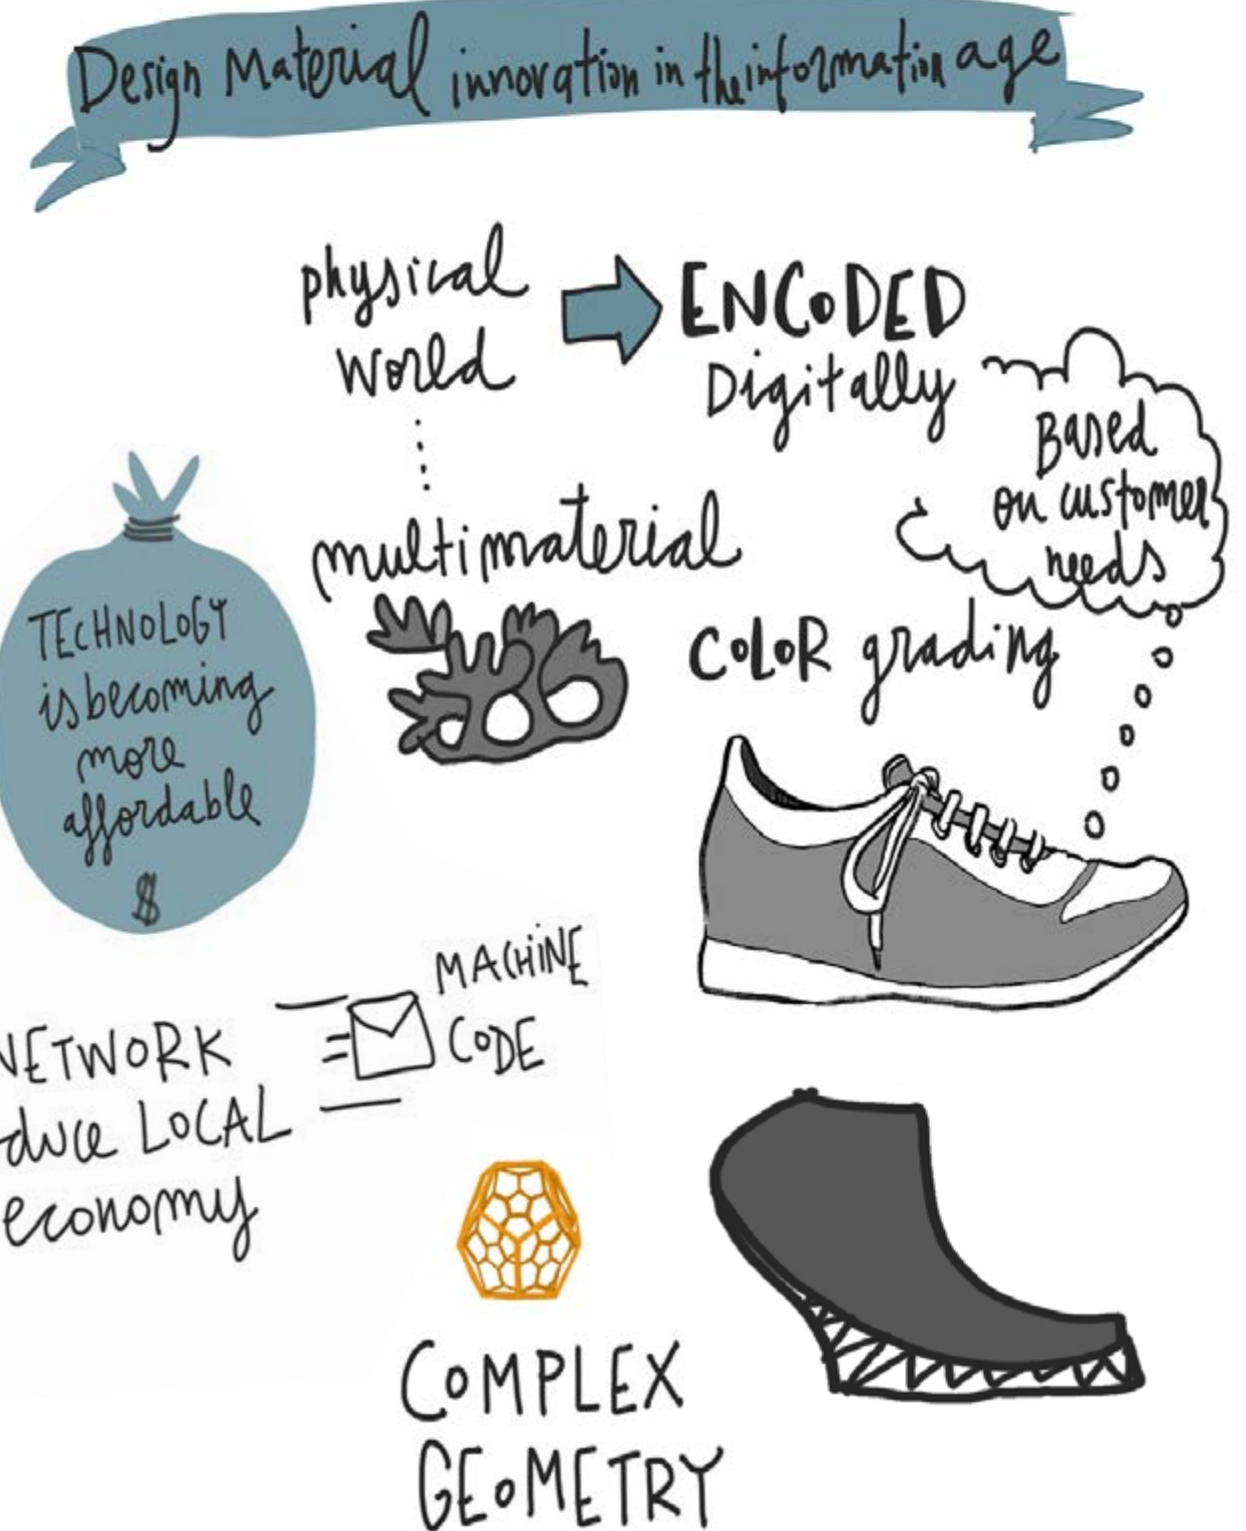 Design Material innovation in the information age
physical
world
ENCODED
Digitally
Based
on customer
needs
multimaterial
COLOR grading
TECHNOLOGY
is becoming
more
affordable
$
MACHINE
CODE
NETWORK
duce LOCAL
economy
COMPLEX
GEOMETRY